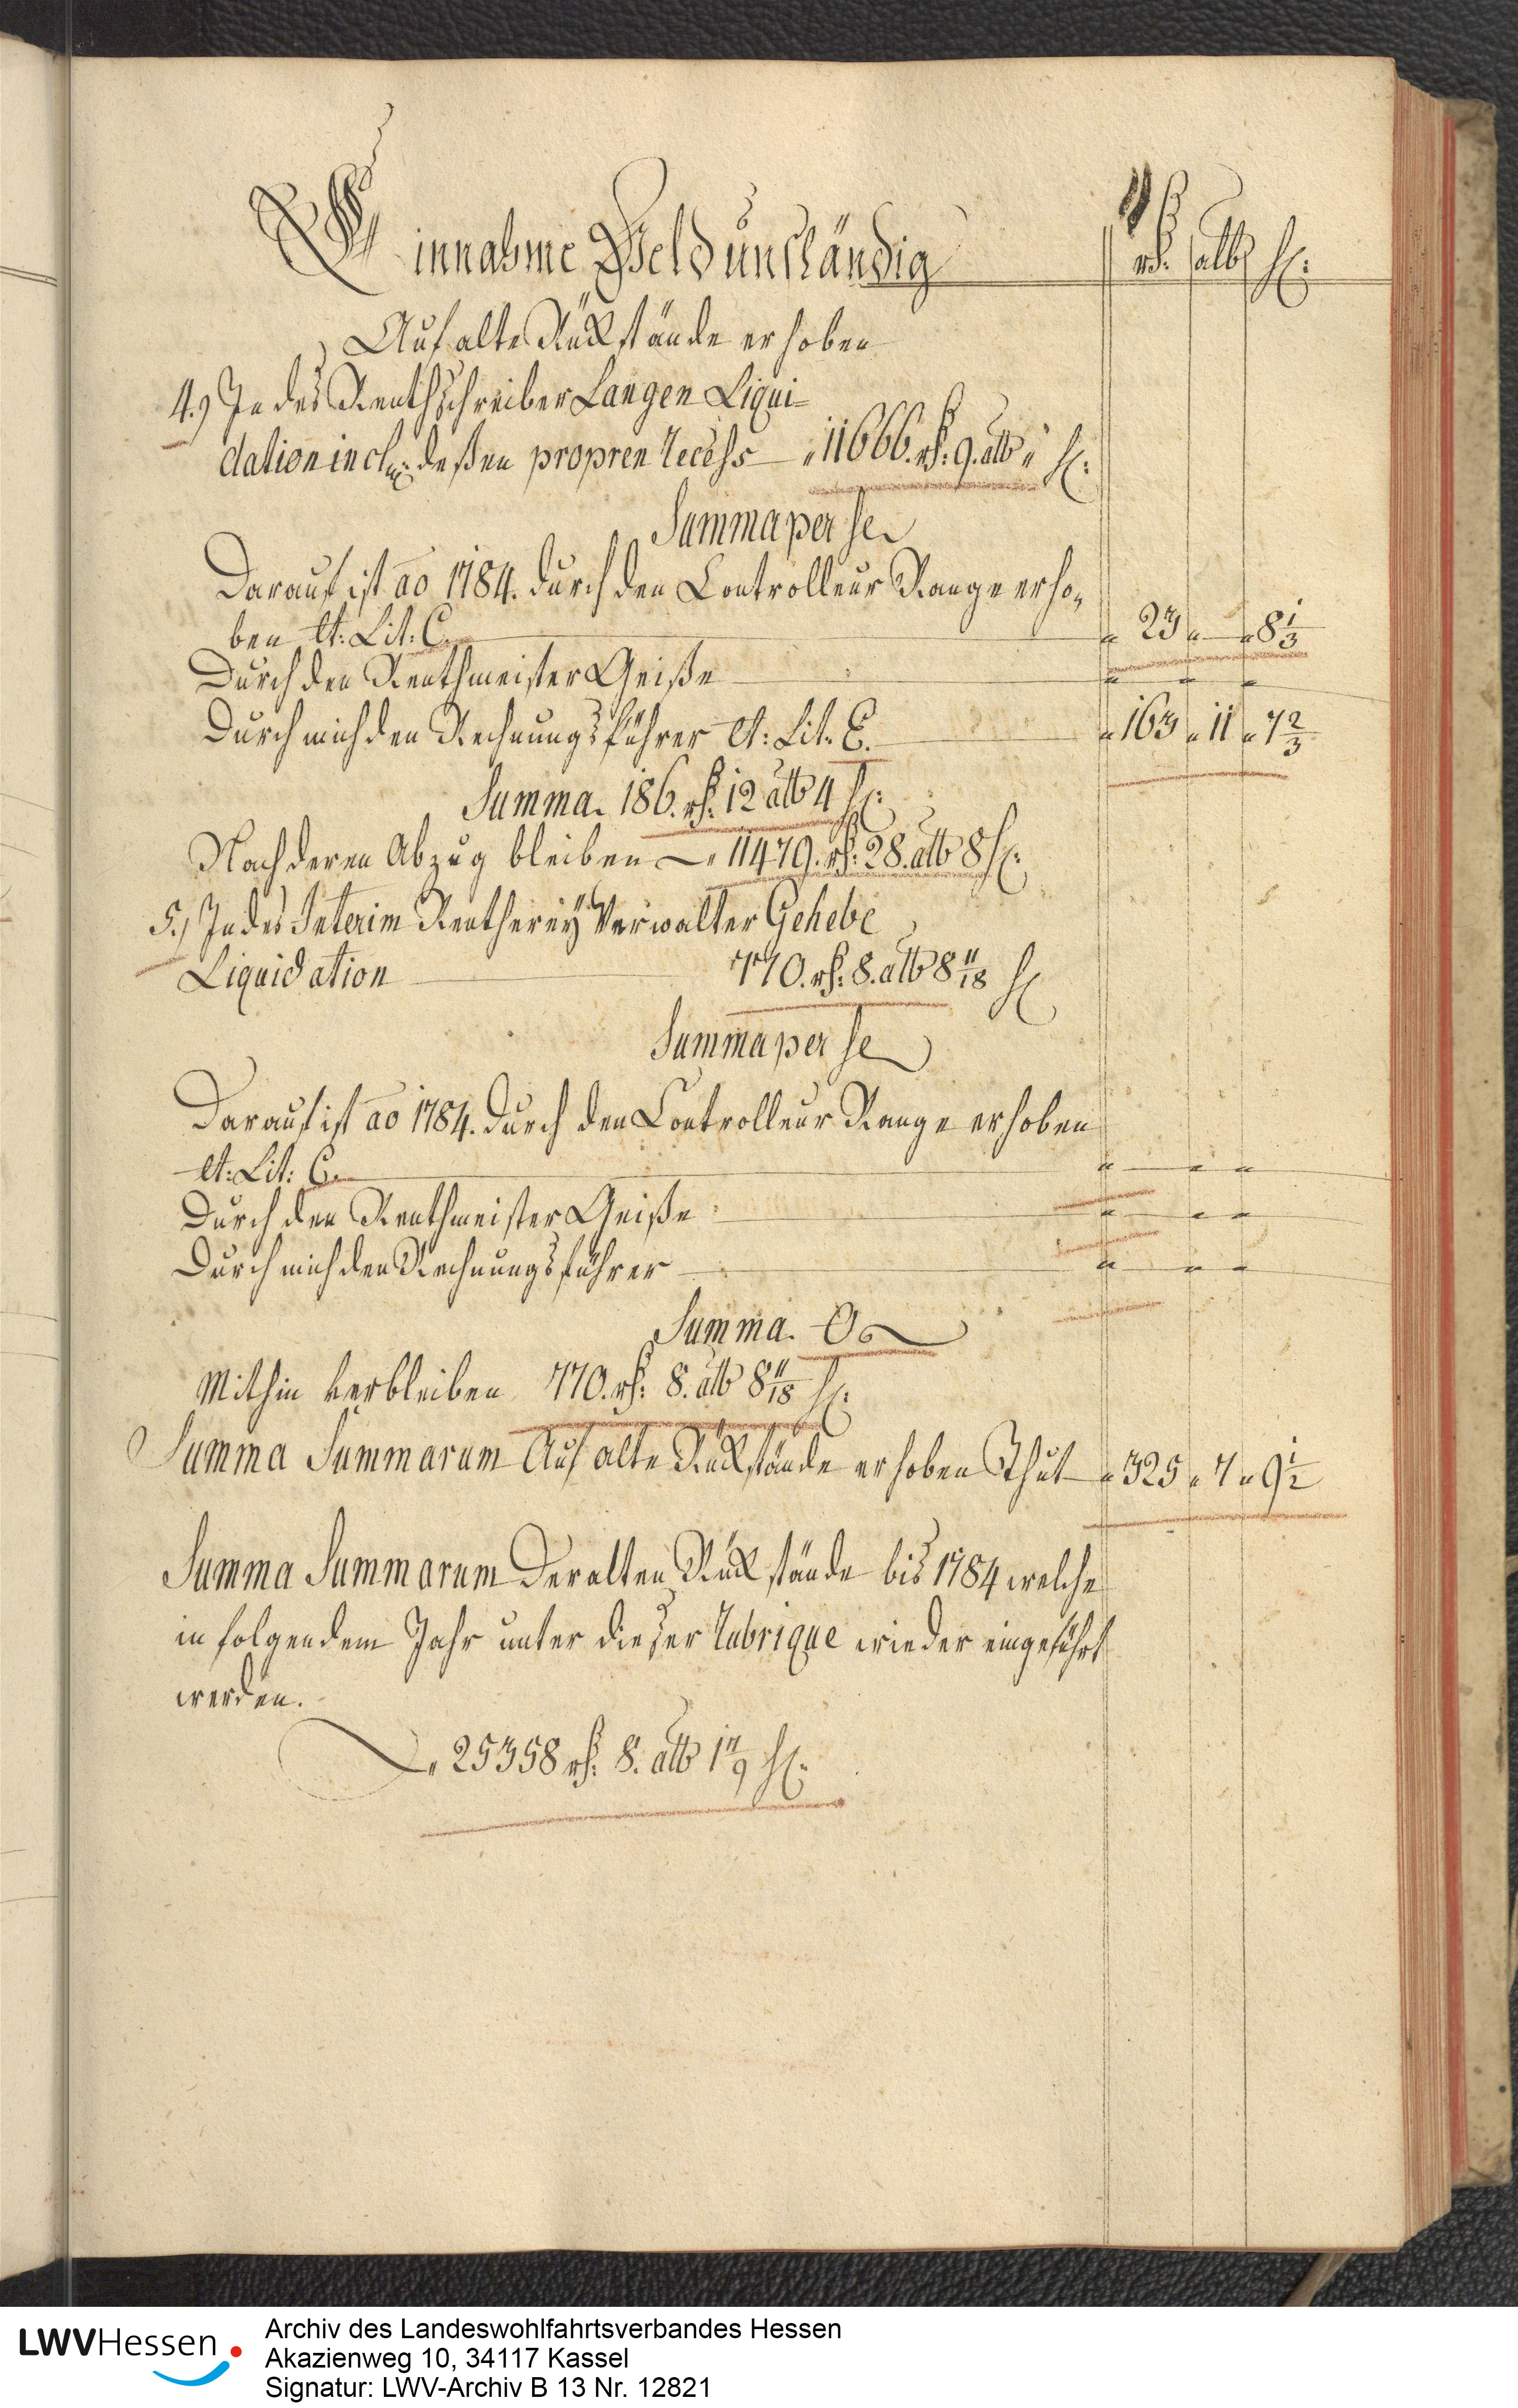 Einnahme Geld unständig rh: alb hl:
Auf alte Rükstände erhoben
4.) In des Renthschreiber Langen Liqui=
dation incl: deßen propren Recess 11666. rh: 9. alb " hl:
Summa per se
Darauf ist ao 1784. durch den Controlleur Range erho,
ben lt: Lit: C. " 23 " — " 8 1/3
Durch den Renthmeister Geiße " " "
Durch mich den Rechnungsführer lt: Lit: E. " 163 " 11 " 7 2/3
Summa. 186. rh: 12 alb 4 hl:
Nach deren Abzug bleiben " 11479. rh: 28. alb 8 hl:
5.) In des Interim Rentherey Verwalter Gehebe
Liquidation 770. rh: 8. alb 8 11/18 hl
Summa per se
Darauf ist ao 1784. durch den Controlleur Range erhoben
lt: Lit: C. " " "
Durch den Renthmeister Geiße " " "
Durch mich den Rechnungsführer " " "
Summa. 0
Mithin verbleiben 770. rh: 8. alb 8 11/18 hl:
Summa Summarum Auf alte Rükstände erhoben Thut " 325 " 7 " 9 1/2
Summa Summarum Der alten Rükstände bis 1784 welche
in folgendem Jahr unter dießer Rubrique wieder eingeführt
werden.
" 25358 rh: 8. alb 1 7/9 hl:
LWVHessen
Archiv des Landeswohlfahrtsverbandes Hessen
Akazienweg 10, 34117 Kassel
Signatur: LWV-Archiv B 13 Nr. 12821